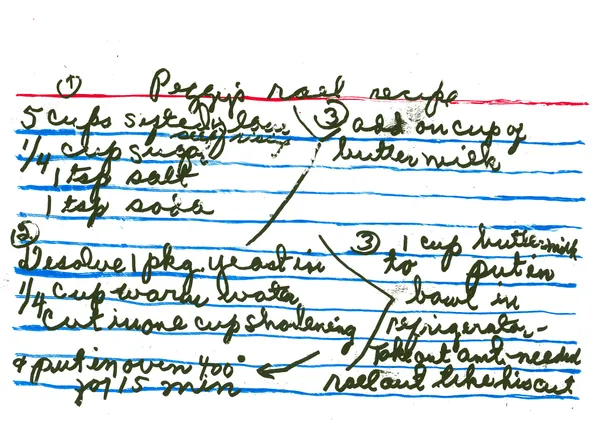 ① Peggy's roll recipe
5 cups syfted flour
self rising
1/4 cup sugar
1 tsp salt
1 tsp soda
③ add on cup of
butter milk
② Desolve 1 pkg. yeast in
1/4 cup warm water,
Cut in one cup shortening
③ 1 cup buttermilk
to put in
bowl in
refrigerator-
Take out amt-needed
roll out like biscut
& put in oven 400°
for 15 min